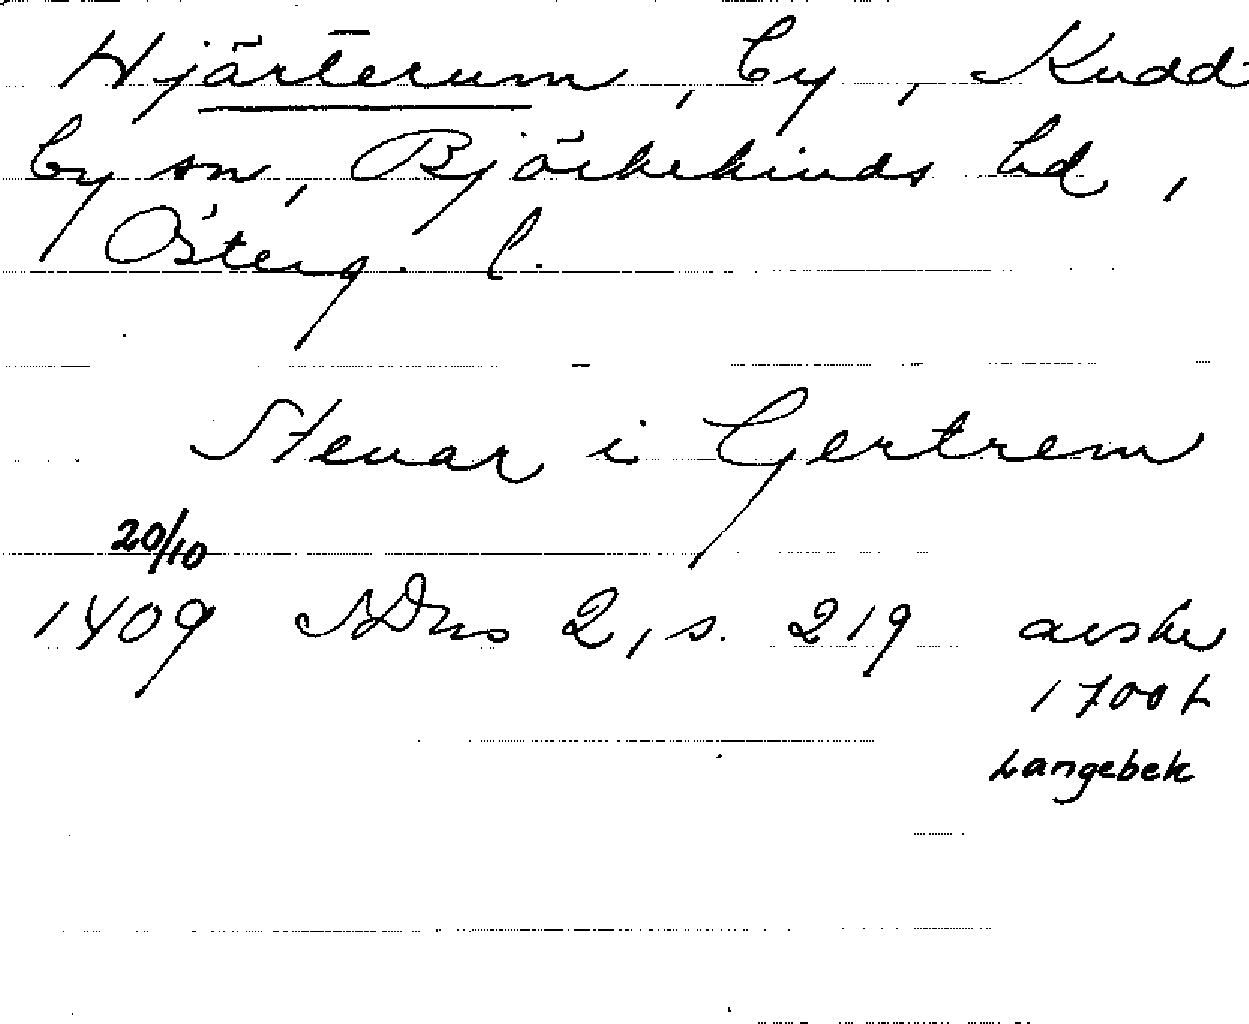 Hjärterum, by, Kudd-
by sn, Björkekinds hd,
Österg. l.
Stenar i Gertrem
20/10
1409 SDns 2, s. 219 avskr
1700 t
Langebek